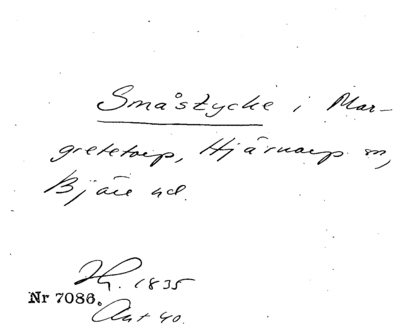 Småstycke i Mar-
gretetorp, Hjärnarp sn,
Bjäre hd.
Hy. 1835
Nr 7086.
Ant 40.